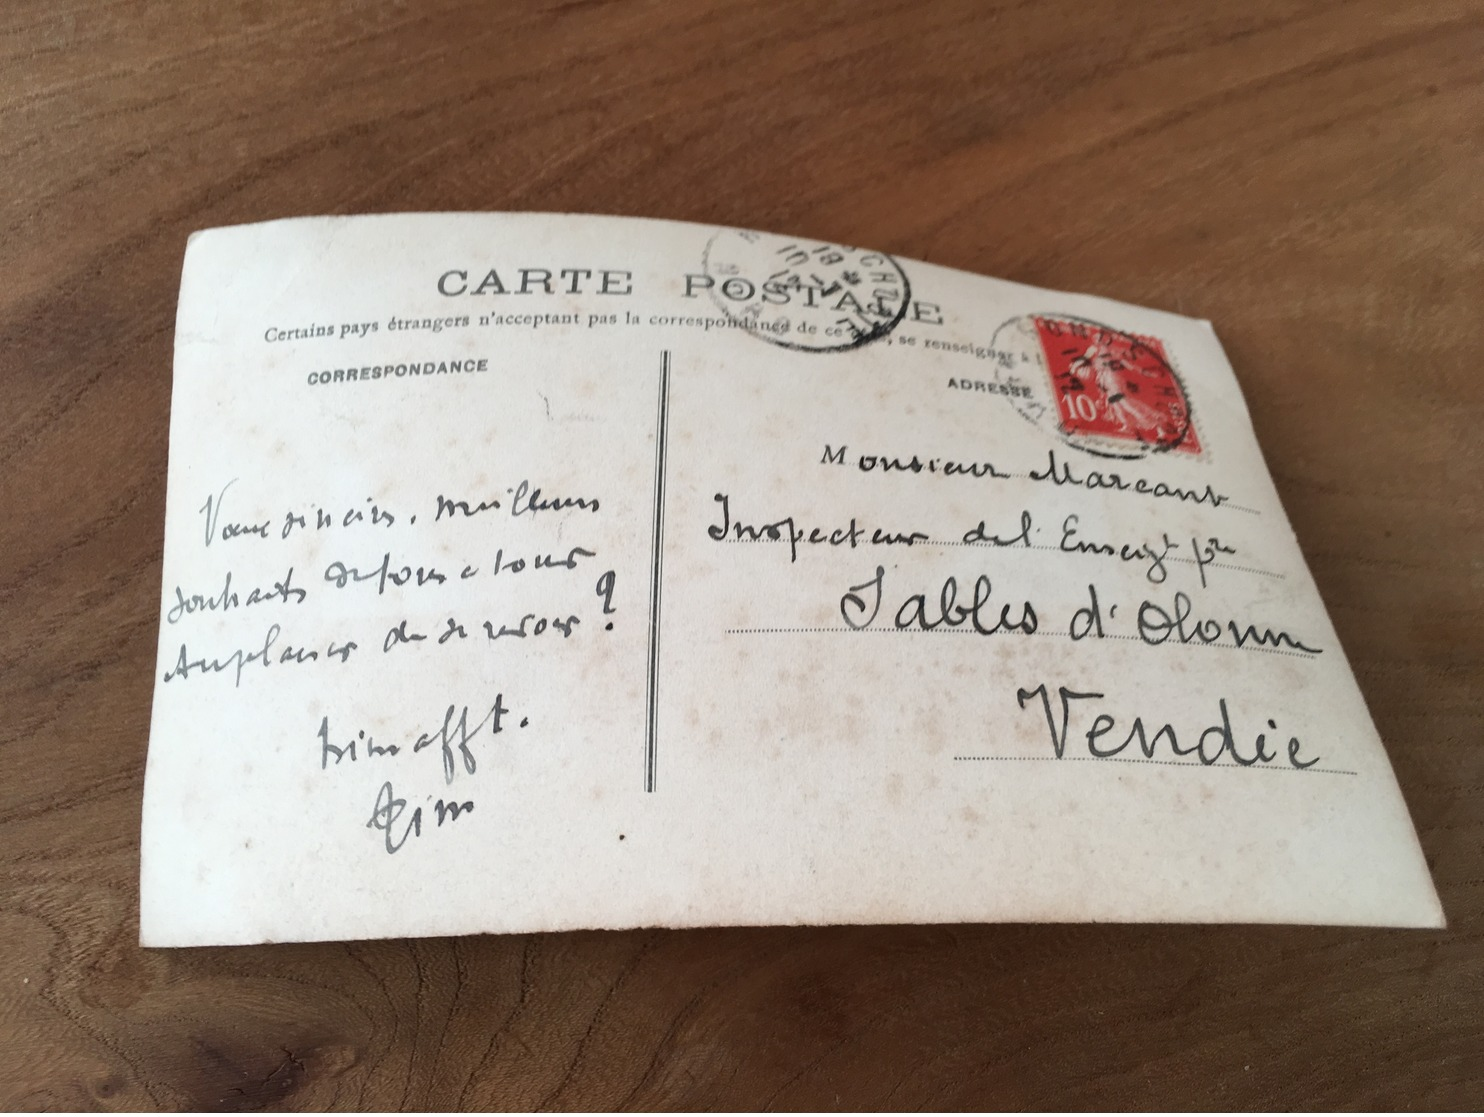 CARTE POSTALE
Certains pays étrangers n'acceptant pas la correspondance de ce, se renseigner à
CORRESPONDANCE
ADRESSE
10c
Monsieur Marcant
Inspecteur del' Enseigt pre
Sables d'Olonne
Vendée
Vœux sincères, meilleurs
souhaits de tous a tous
Au plaisir de se revoir ?
bien afft.